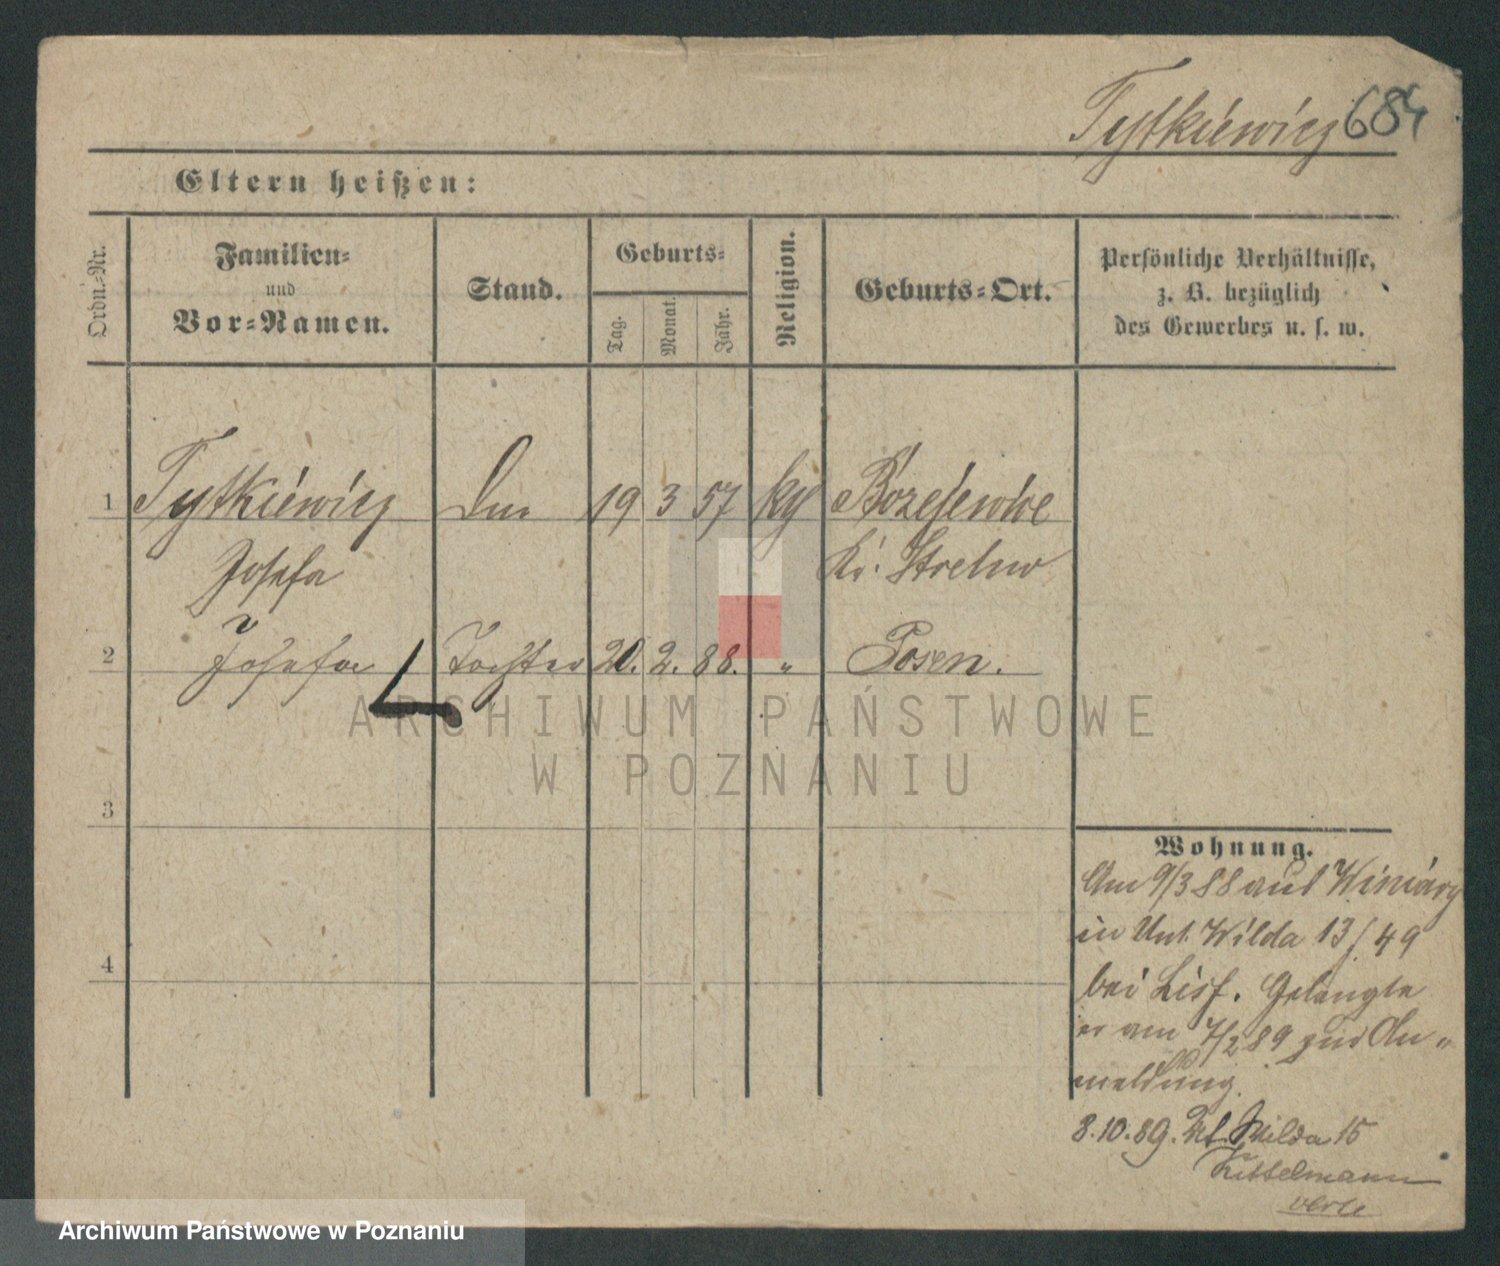 Tytkiéwicz 684
Eltern heißen:
Ordn.-Nr.
Familien-
und
Vor-Namen.
Stand.
Geburts-
Tag.
Monat.
Jahr.
Religion.
Geburts-Ort.
Persönliche Verhältnisse,
z. B. bezüglich
des Gewerbes u. s. w.
1 Tytkiéwicz 19 3 57 Bozejewice
Josefa Kr. Strelno
2 Josefa Tochter 20. 2. 88. " Posen.
3
4
Wohnung.
Am 9/3 88 aus Winiary
in Unt. Wilda 13/49
bei Gelangte
er am 7/2 89 zur An-
meldung.
8.10.89. Ut. Wilda 15
Kittelmann
ARCHIWUM PAŃSTWOWE
W POZNANIU
Archiwum Państwowe w Poznaniu